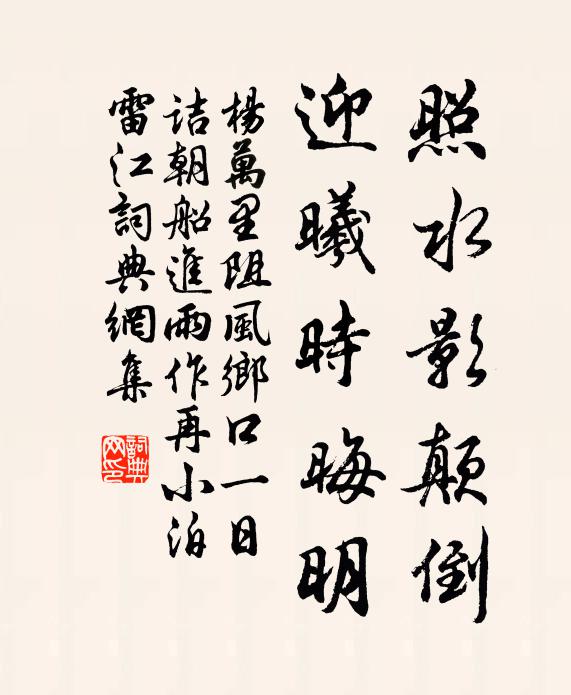 照水影颠倒
迎曦時晦明
楊萬里阻風鄉口一日
詰朝船進雨作再小泊
雷江詞典網集
詞典网印